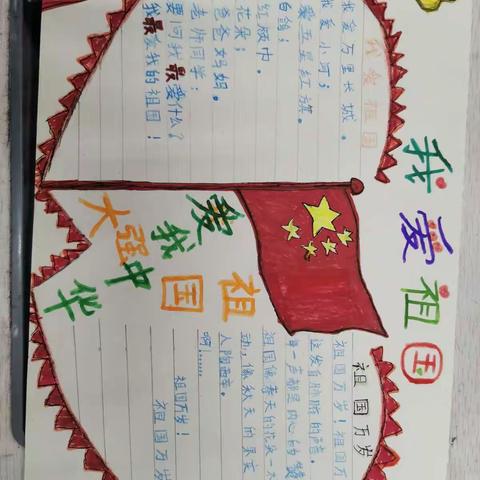 我爱祖国
我爱祖国
我爱万里长城。
我爱小河；
爱五星红旗。
白鸽；
红领巾。
花朵；
爸爸妈妈。
老师同学；
要问我最爱什么？
我最爱我的祖国！
爱我中华
强大祖国
祖国万岁
祖国万岁！祖国万
这发自肺腑的声音。
每一声都是内心的赞
祖国像春天的花朵一
动，像秋天的果实
人陶醉。
啊！……
祖国万岁！
祖国万岁